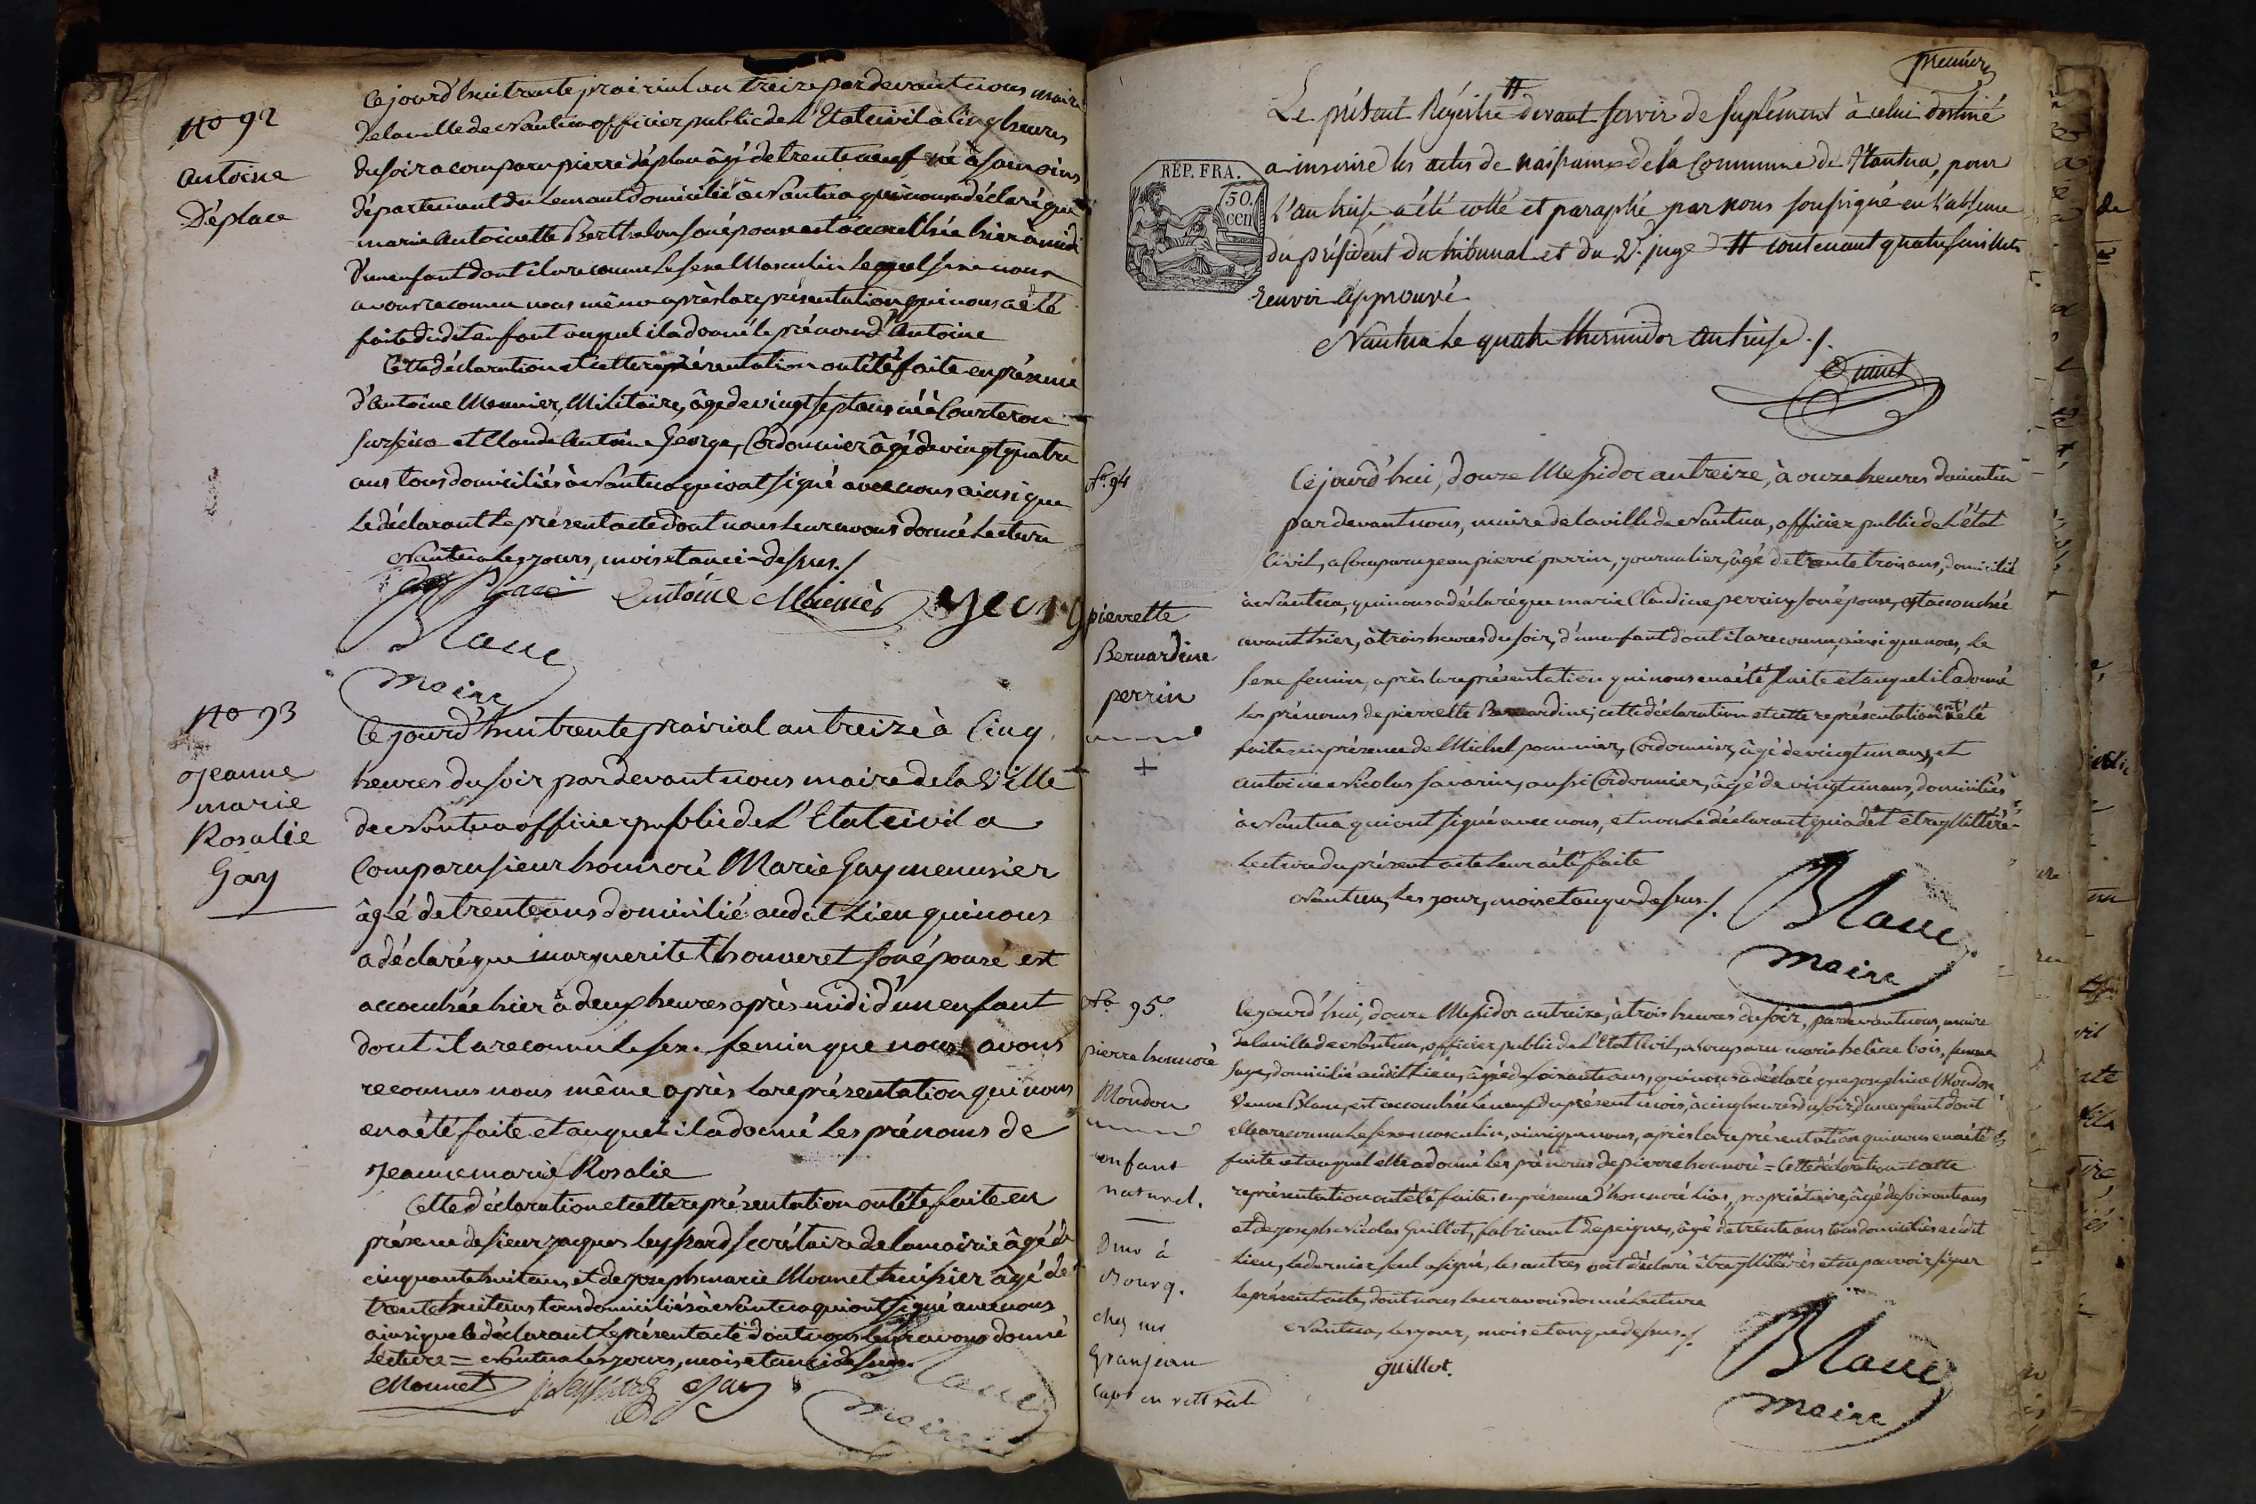 No 92
Antoine
Déplace
Cejourd'hui trente prairial an treize pardevant nous maire
de la ville de Nantua officier public de L'Etat civil à cinq heures
du soir a comparu pierre déplace âgé de trente neuf né à
département du Leman domicilié à Nantua qui nous a déclaré que
marie Antoinette Berthelon son épouse est accouchée hier à midi
d'un enfant dont il a reconnu le sexe Masculin lequel sexe nous
avons reconnu nous même après la représentation qui nous a été
faite dudit enfant auquel il a donné le prénom d'Antoine
Cette déclaration et cette représentation ont été faite en présence
d'Antoine Meunier, Militaire, âgé de vingt sept ans né à Courteron
sur seine et Claude Antoine George, Cordonnier âgé de vingt quatre
ans tous domiciliés à Nantua qui ont signé avec nous ainsi que
le déclarant le présent acte dont nous leur avons donné lecture
Nantua les jours, mois et an ci-dessus./
Antoine
Blanc
maire
No 93
Jeanne
marie
Rosalie
Gay
Cejourd'hui trente prairial an treize à Cinq
heures du soir pardevant nous maire de la Ville
de Nantua officier public de L'Etat civil a
Comparu sieur honnoré Marie Gay menusier
âgé de trente ans domicilié audit Lieu qui nous
a déclaré que marguerite Thouveret son épouse est
accouchée hier à deux heures après midi d'un enfant
dont il a reconnu le sexe feminin que nous avons
reconnus nous même après la représentation qui nous
en a été faite et auquel il a donné les prénoms de
Jeanne marie Rosalie
Cette déclaration et cette représentation ont été faite en
présence de sieur jacques Leyssard secrétaire de la mairie âgé de
cinquante huit ans et de joseph marie Monnet huissier âgé de
trente huit ans tous domiciliés à Nantua qui ont signé avec nous
ainsi que le déclarant le présent acte dont nous leur avons donné
lecture = Nantua les jours, mois et an ci dessus.
Monnet Leyssard Gay
Blanc
maire
premier
Le présent Régistre # devant servir de suplément à celui destiné
a inscrire les actes de naissance de la Commune de Nantua, pour
RÉP. FRA.
50.
cen
l'an treise a été cotté et paraphé par nous soussigné en l'absence
du président du tribunal et du 2e. juge # contenant quatre feuillets
renvoi approuvé
Nantua le quatre thermidor an treise ./.
No. 94
pierrette
Bernardine
perrin
+
Cejourd'hui, douze Messidor an treize, à onze heures du matin
par devant nous, maire de la ville de Nantua, officier public de L'état
Civil, a Comparu jean pierre perrin, journalier, âgé de trente trois ans, domicilié
à Nantua, qui nous a déclaré que marie Claudine perrin, son épouse, est accouchée
avant hier, à trois heures du soir, d'un enfant dont il a reconnu, ainsi que nous, le
sexe feminin, après la représentation qui nous en a été faite et auquel il a donné
les prénoms de pierrette Bernardine; cette déclaration et cette représentation ont été
faites en présence de Michel pommier, Cordonnier, âgé de vingt un ans, et
antoine Nicolas Savarin, aussi Cordonnier, âgé de vingt un ans, domiciliés
à Nantua qui ont signé avec nous, et non le déclarant qui a dit être illittéré
lecture du présent acte leur a été faite
Nantua, les jour, mois et an que dessus./.
Blanc
maire
No. 95.
pierre honnoré
Moudon
enfant
naturel.
à
Bourg.
chez
Granjean
Cejourd'hui, douze Messidor an treize, à trois heures du soir, pardevant nous, maire
de la ville de Nantua, officier public de L'Etat Civil, a comparu marie helêne bois, femme
sage, domicilié audit Lieu, âgée de soixante ans, qui nous a déclaré que josephine Moudon
Veuve Blanc, est accouchée le neuf du présent mois, à cinq heures du soir, d'un enfant dont
elle a reconnu le sexe masculin, ainsi que nous, après la représentation qui nous en a été
faite et auquel elle a donné les prénoms de pierre honnoré = Cette déclaration et cette
représentation ont été faites en présence d'honnoré Lios, propriétaire, âgé de soixante ans
et de joseph Nicolas Guillot, fabricant de peignes, âgé de trente ans tous domiciliés audit
Lieu, le dernier seul a signé, les autres ont déclaré être illittérés et ne pouvoir signer
le présent acte, dont nous leur avons donné lecture
Nantua, les jour, mois et an que dessus./.
guillot.
Blanc
maire